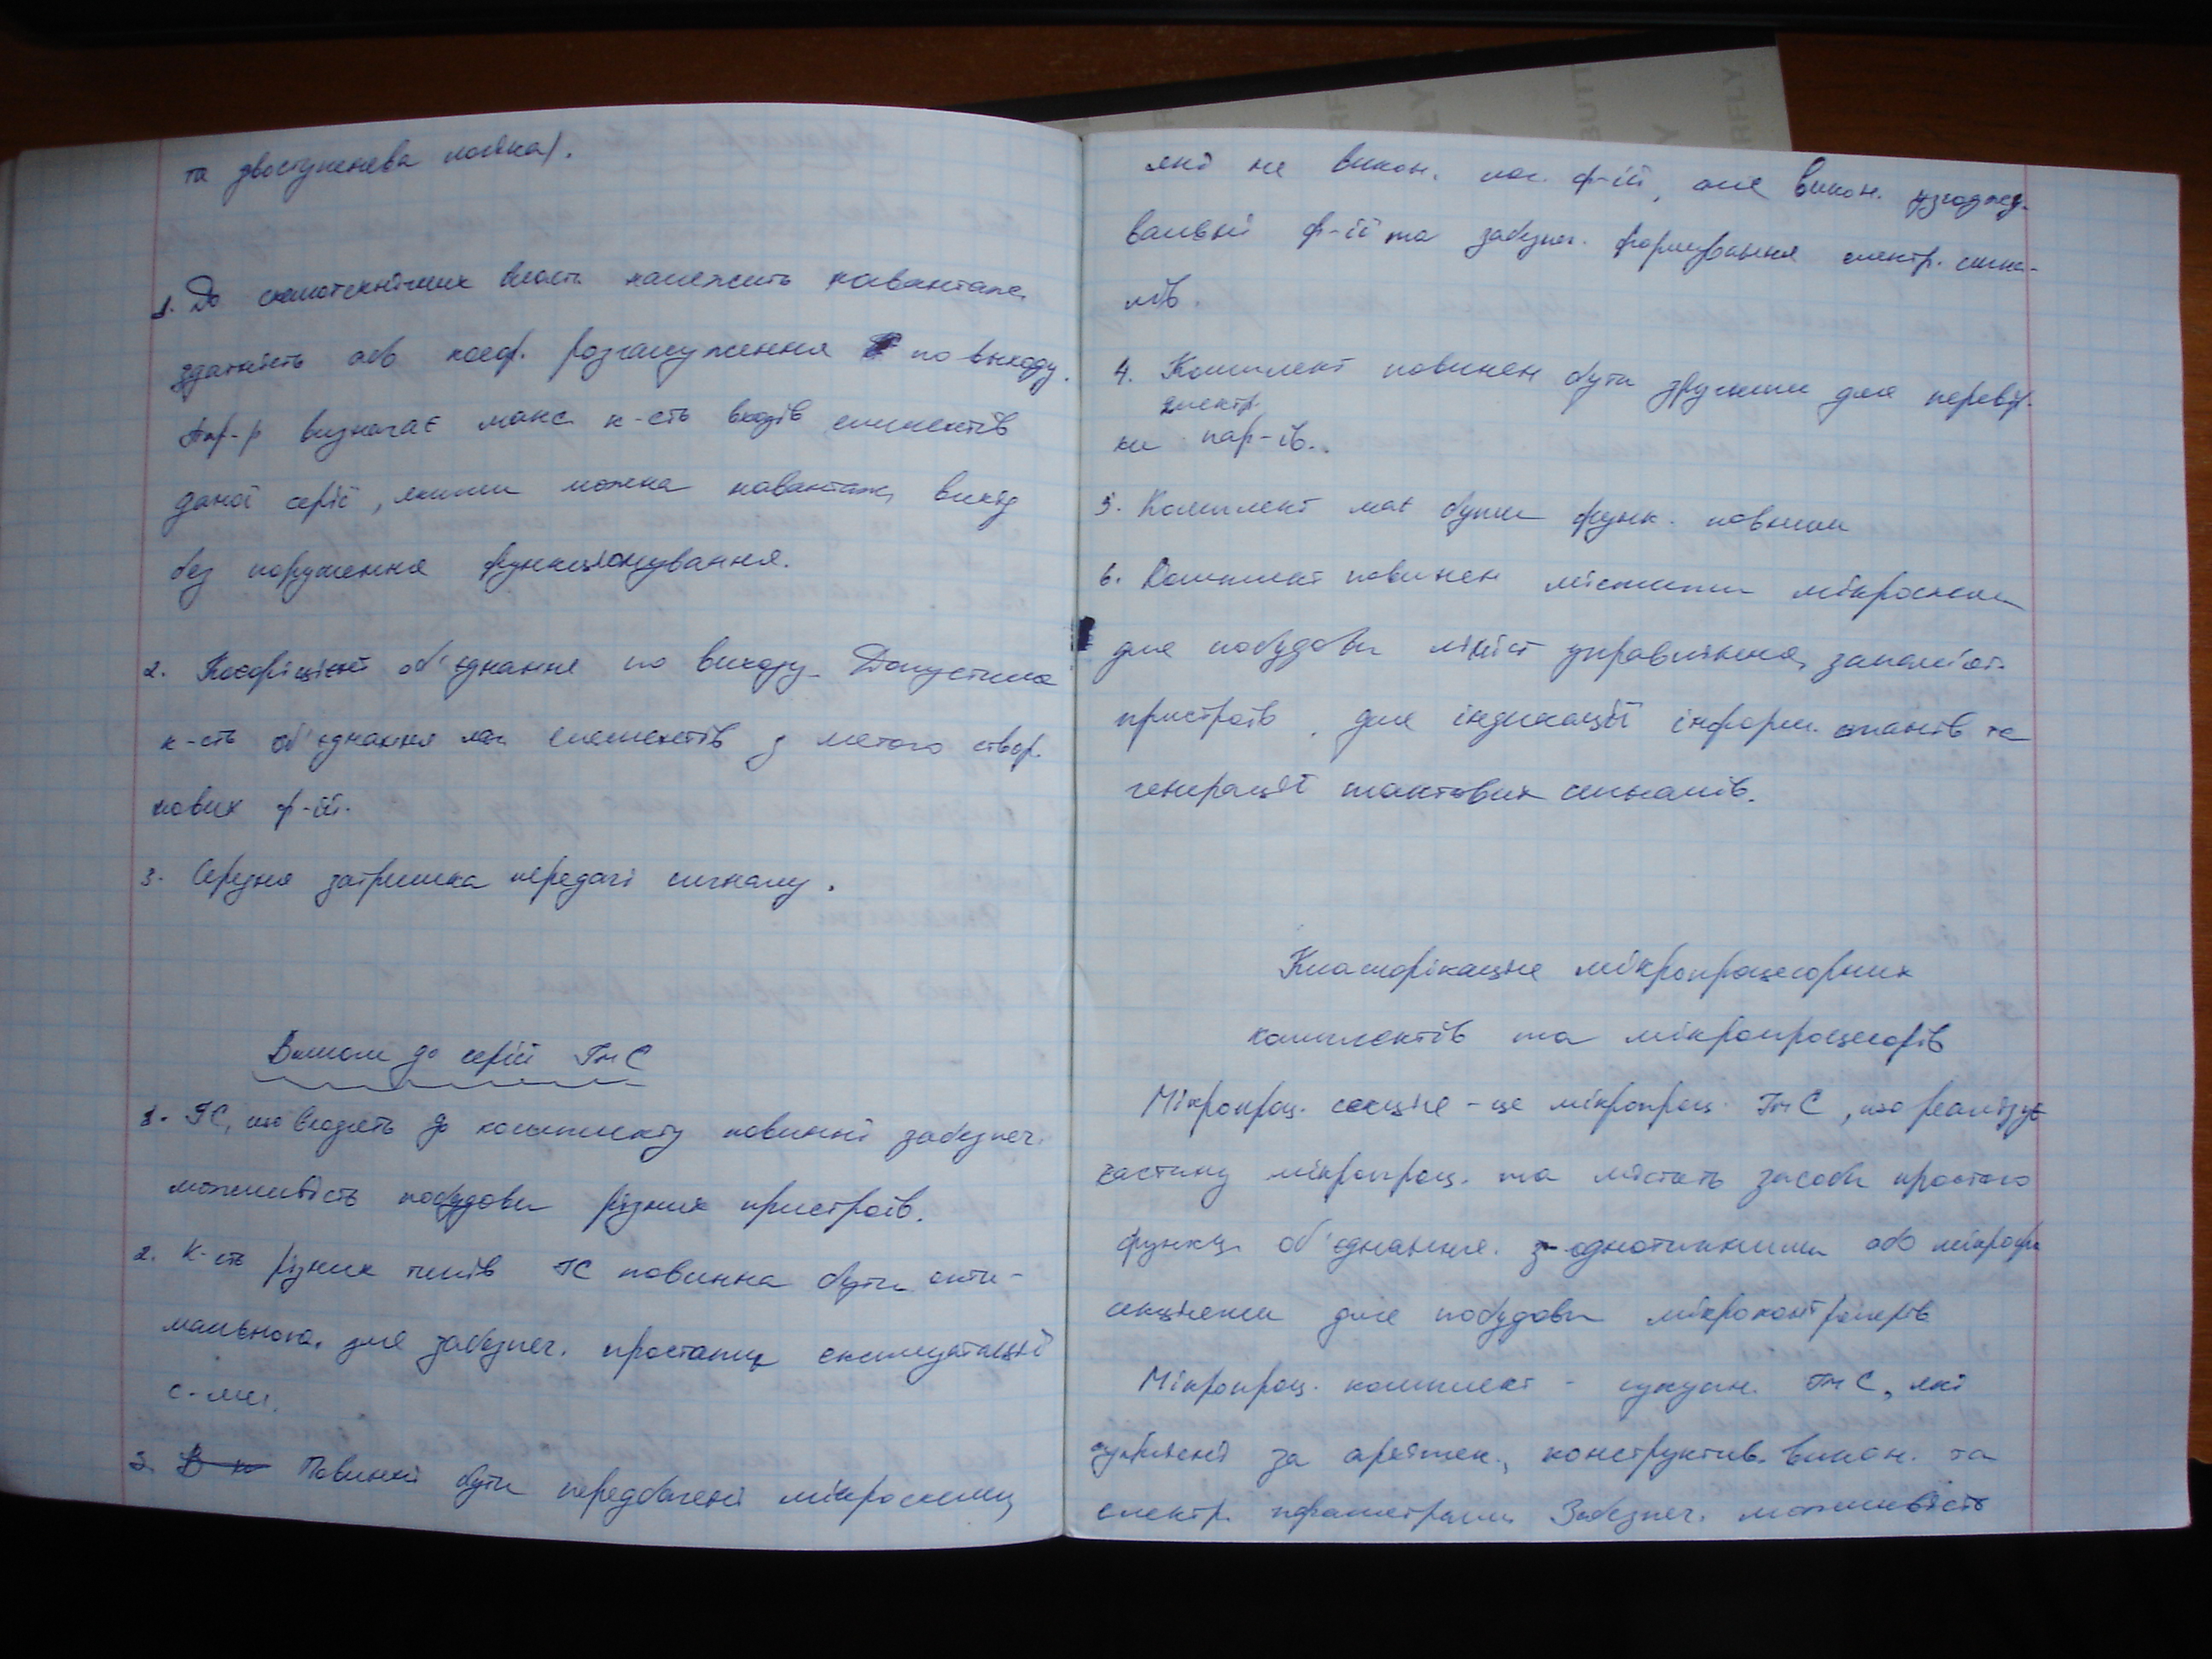 та двоступенева логіка).
1. До схемотехнічних власт. належить навантаж.
здатність або коеф. розгалуження по выходу.
Пар-р визначає макс. к-сть входів елементів
даної серії, якими можна навантаж. вихід
без порушення функціонування.
2. Коефіцієнт об'єднання по виходу. Допустима
к-сть об'єднання лог. елементів з метою створ.
нових ф-ій.
3. Середня затримка передачі сигналу.
Вимоги до серій ІмС
1. ІС, що входять до комплекту повинні забезпеч.
можливість побудови різних пристроїв.
2. К-сть різних типів ІС повинна бути опти-
мальною, для забезпеч. простати експлуатації
с-ми.
3. Повинні бути передбачені мікросхеми,
які не викон. лог. ф-ій, але викон. узгоджу-
вальні ф-ії та забезпеч. формування електр. сигна-
лів.
4. Комплект повинен бути зручним для перевір-
електр.
ки пар-ів.
5. Комплект має бути функ. повним
6. Комплект повинен містити мікросхеми
для побудови управління, запам'ят.
пристроїв, для індикації інформ. станів та
генерації тактових сигналів.
Класифікація мікропроцесорних
комплектів та мікропроцесорів
Мікропроц. секція - це мікропроц. ІмС, що реалізує
частину мікропроц. та містить засоби простого
функц. об'єднання з однотипними або мікропр.
секціями для побудови мікроконтролерів
Мікропроц. комплект - сукупн. ІмС, які
сумісні за архітек., конструктив. викон. та
електр. параметрами. Забезпеч. можливість